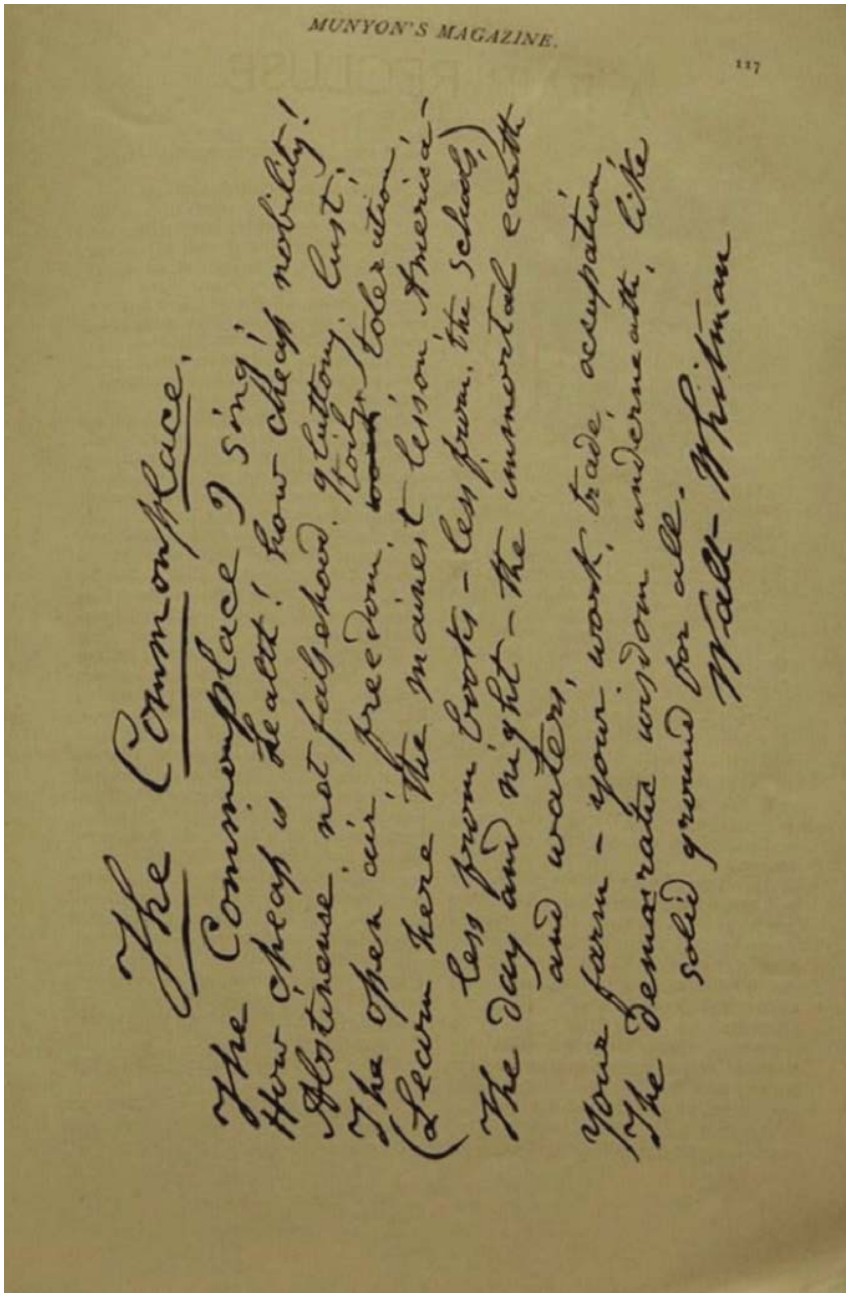 MUNYON'S MAGAZINE.
117
The Commonplace.
The Commonplace I sing;
How cheap is health! how cheap nobility!
Abstinence, not falsehood, gluttony, lust;
The open air, freedom, work toil, toleration,
(Learn here the mainest lesson, America—
less from books – less from the schools,)
The day and night – the immortal earth
and waters,
Your farm – your work, trade, occupation,
The democratic wisdom underneath, like
solid ground for all.
Walt Whitman